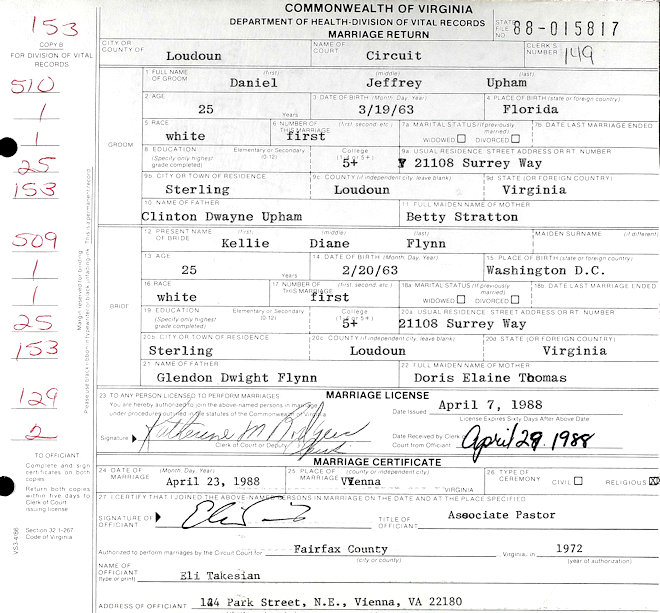 COMMONWEALTH OF VIRGINIA
DEPARTMENT OF HEALTH-DIVISION OF VITAL RECORDS
MARRIAGE RETURN
STATE FILE NO. 88-015817
153
COPY B
FOR DIVISION OF VITAL RECORDS
CITY OR COUNTY OF Loudoun NAME OF COURT Circuit CLERK'S NUMBER 149
510
1
1
25
153
GROOM
1 FULL NAME OF GROOM (first) Daniel (middle) Jeffrey (last) Upham
2 AGE 25 Years 3 DATE OF BIRTH (Month, Day, Year) 3/19/63 4 PLACE OF BIRTH (state or foreign country) Florida
5 RACE white 6 NUMBER OF THIS MARRIAGE (first, second, etc.) first 7a MARITAL STATUS (if previously married) WIDOWED DIVORCED 7b DATE LAST MARRIAGE ENDED
8 EDUCATION (Specify only highest grade completed) Elementary or Secondary (0-12) College (1-4 or 5+) 5+ 9a USUAL RESIDENCE STREET ADDRESS OR RT NUMBER 21108 Surrey Way
9b CITY OR TOWN OF RESIDENCE Sterling 9c COUNTY (if independent city, leave blank) Loudoun 9d STATE (OR FOREIGN COUNTRY) Virginia
10 NAME OF FATHER Clinton Dwayne Upham 11 FULL MAIDEN NAME OF MOTHER Betty Stratton
509
1
1
25
153
BRIDE
12 PRESENT NAME OF BRIDE (first) Kellie (middle) Diane (last) Flynn MAIDEN SURNAME (if different)
13 AGE 25 Years 14 DATE OF BIRTH (Month, Day, Year) 2/20/63 15 PLACE OF BIRTH (state or foreign country) Washington D.C.
16 RACE white 17 NUMBER OF THIS MARRIAGE (first, second, etc.) first 18a MARITAL STATUS (if previously married) WIDOWED DIVORCED 18b DATE LAST MARRIAGE ENDED
19 EDUCATION (Specify only highest grade completed) Elementary or Secondary (0-12) College (1-4 or 5+) 5+ 20a USUAL RESIDENCE STREET ADDRESS OR RT NUMBER 21108 Surrey Way
20b CITY OR TOWN OF RESIDENCE Sterling 20c COUNTY (if independent city, leave blank) Loudoun 20d STATE (OR FOREIGN COUNTRY) Virginia
21 NAME OF FATHER Glendon Dwight Flynn 22 FULL MAIDEN NAME OF MOTHER Doris Elaine Thomas
Margin reserved for binding
This is a permanent record.
129
2
23 TO ANY PERSON LICENSED TO PERFORM MARRIAGES MARRIAGE LICENSE
You are hereby authorized to join the above-named persons in marriage under procedures outlined in the statutes of the Commonwealth of Virginia
Date Issued April 7, 1988
License Expires Sixty Days After Above Date
Signature Katherine M Rodgers
Clerk of Court or Deputy
Date Received by Clerk of Court from Official: April 29 1988
TO OFFICIANT
Complete and sign certificates on both copies
Return both copies within five days to Clerk of Court issuing license
Section 32.1-267 Code of Virginia
VS3 4/86
MARRIAGE CERTIFICATE
24 DATE OF MARRIAGE (Month, Day, Year) April 23, 1988 25 PLACE OF MARRIAGE (county or independent city) Vienna VIRGINIA 26 TYPE OF CEREMONY CIVIL RELIGIOUS X
27 I CERTIFY THAT I JOINED THE ABOVE-NAMED PERSONS IN MARRIAGE ON THE DATE AND AT THE PLACE SPECIFIED
SIGNATURE OF OFFICIANT Eli TITLE OF OFFICIANT Associate Pastor
Authorized to perform marriages by the Circuit Court for Fairfax County Virginia, in 1972
(city or county) (year of authorization)
NAME OF OFFICIANT (type or print) Eli Takesian
ADDRESS OF OFFICIANT 124 Park Street, N.E., Vienna, VA 22180